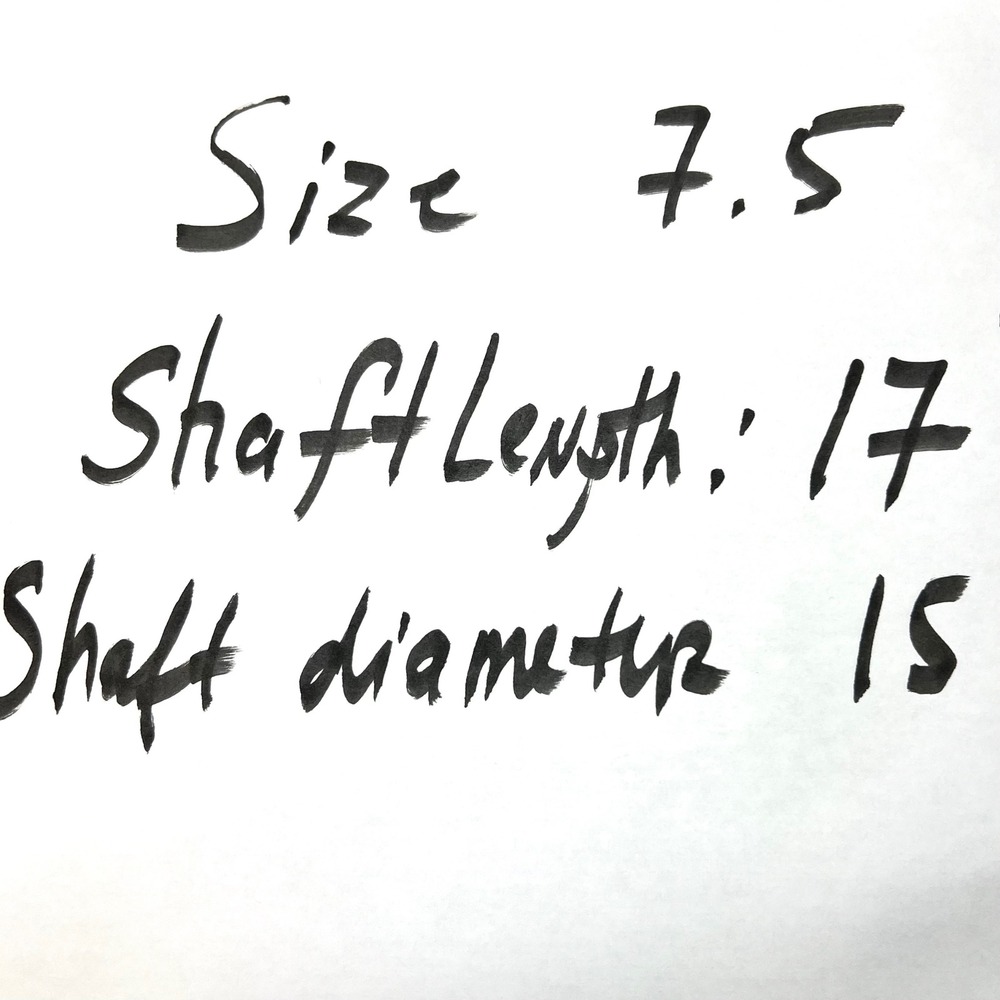 Size 7.5
Shaft Length: 17
Shaft diameter 15